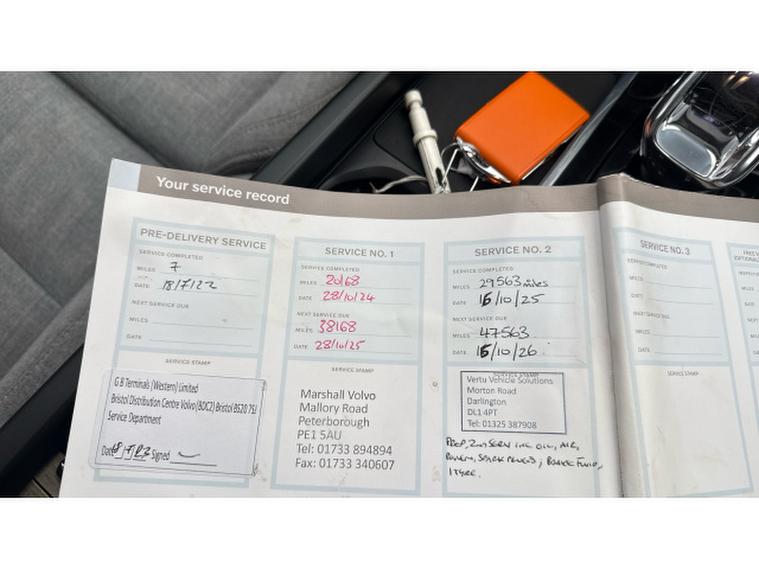 Your service record
PRE-DELIVERY SERVICE
SERVICE COMPLETED
MILES 7
DATE 18/7/22
NEXT SERVICE DUE
MILES
DATE
SERVICE STAMP
G B Terminals (Western) Limited
Bristol Distribution Centre Volvo (BDC2) Bristol BS20 7SJ
Service Department
Date 18/7/22 Signed
SERVICE NO. 1
SERVICE COMPLETED
MILES 20168
DATE 28/10/24
NEXT SERVICE DUE
MILES 38168
DATE 28/10/25
SERVICE STAMP
Marshall Volvo
Mallory Road
Peterborough
PE1 5AU
Tel: 01733 894894
Fax: 01733 340607
SERVICE NO. 2
SERVICE COMPLETED
MILES 29563 miles
DATE 15/10/25
NEXT SERVICE DUE
MILES 47563
DATE 15/10/26
SERVICE STAMP
Vertu Vehicle Solutions
Morton Road
Darlington
DL1 4PT
Tel: 01325 387908
PREP, 2ND SERV INC OIL, AIR,
POLLEN, SPARK PLUGS, BRAKE FLUID,
1 TYRE.
SERVICE NO. 3
SERVICE COMPLETED
MILES
DATE
NEXT SERVICE DUE
MILES
DATE
SERVICE STAMP